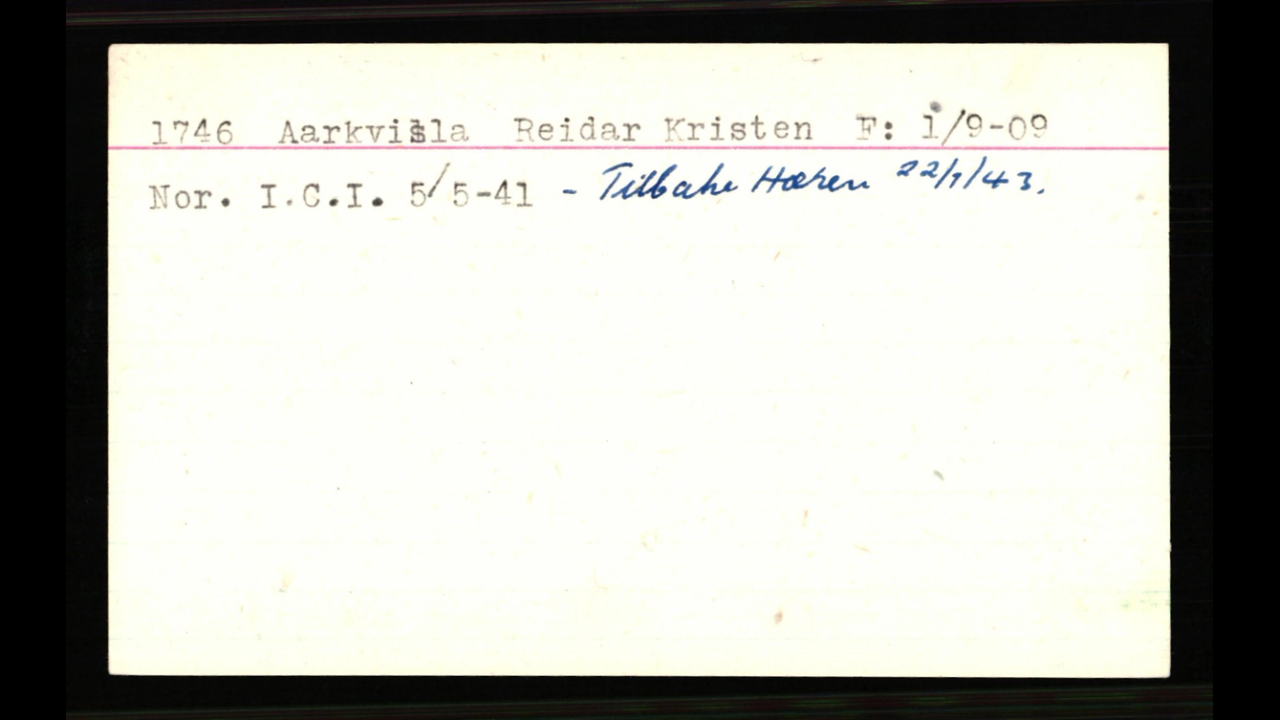 1746 Aarkvisla Reidar Kristen F: 1/9-09
Nor. I.C.I. 5/5-41 - Tilbake Hæren 22/1/43.